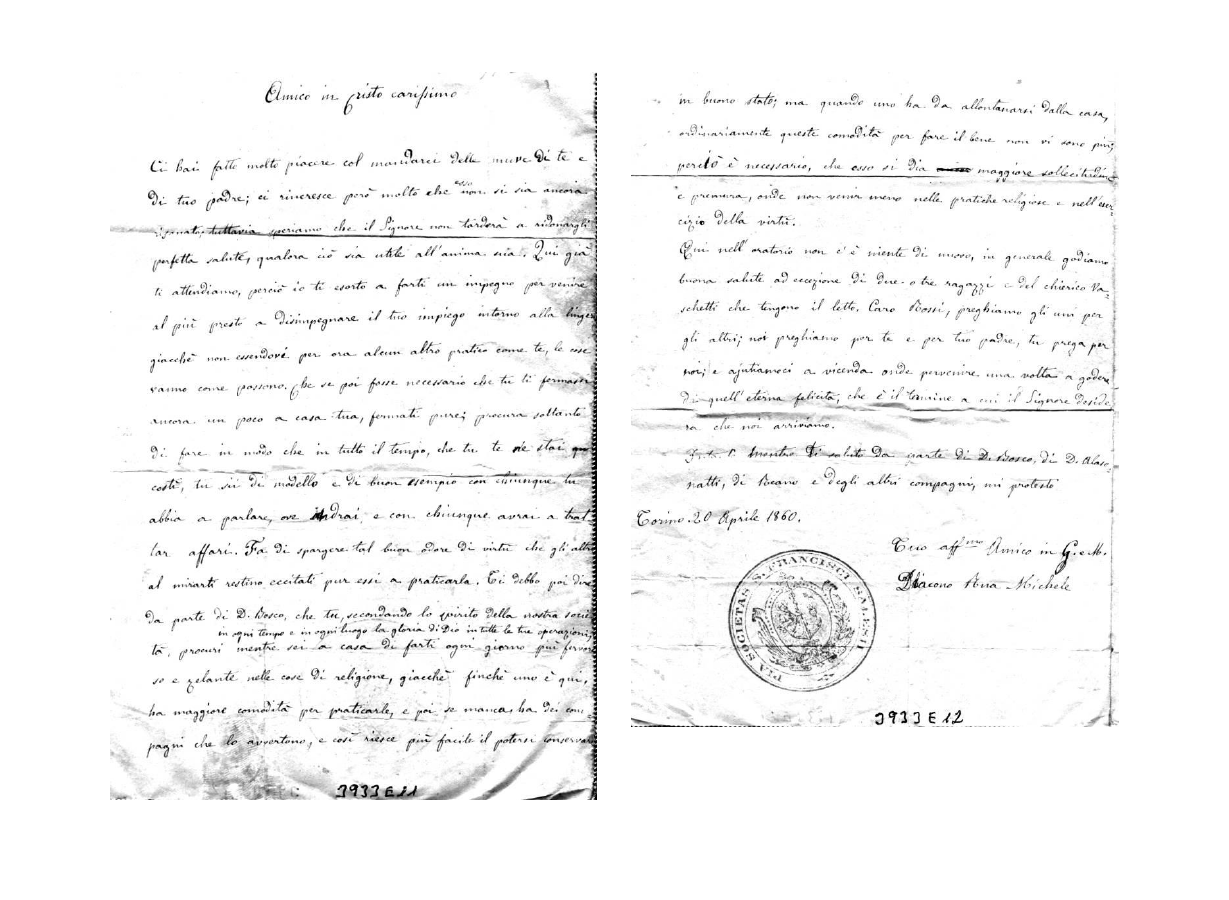 Amico in Cristo carissimo
Ci hai fatto molto piacere col mandarci delle nuove di te e
di tuo padre; ci rincresce però molto che esso non si sia ancora
risanato, tuttavia speriamo che il Signore non tarderà a ridonargli
perfetta salute, qualora ciò sia utile all'anima sua. Qui già
ti attendiamo, perciò io ti esorto a farti un impegno per venire
al più presto a disimpegnare il tuo impiego intorno alla linge
giacchè non essendovi per ora alcun altro pratico come te, le cose
vanno come possono. Che se poi fosse necessario che tu ti fermassi
ancora un poco a casa tua, fermati pure; procura soltanto
di fare in modo che in tutto il tempo, che tu te ne stai
costì, tu sii di modello e di buon esempio con chiunque tu
abbia a parlare, ove andrai, e con chiunque avrai a trat-
tar affari. Fa di spargere tal buon odore di virtù che gli altri
al mirarti restino eccitati pur essi a praticarla. Ti debbo poi dire
da parte di D. Bosco, che tu, secondando lo spirito della nostra socie
in ogni tempo e in ogni luogo la gloria di Dio in tutte le tue operazioni,
tà, procuri mentre sei a casa di farti ogni giorno più fervo
so e zelante nelle cose di religione, giacchè finchè uno è qui,
ha maggiore comodità per praticarle, e poi se manca, ha dei com-
pagni che lo avvertono, e così riesce più facile il potersi conservare
3933 E 11
in buono stato; ma quando uno ha da allontanarsi dalla casa,
ordinariamente queste comodità per fare il bene non vi sono più;
perciò è necessario, che esso si dia maggiore sollecitudine
e premura, onde non venir meno nelle pratiche religiose e nell'eser-
cizio della virtù.
Qui nell'oratorio non c'è niente di nuovo, in generale godiamo
buona salute ad eccezione di due o tre ragazzi e del chierico Va-
schetti che tengono il letto. Caro Rossi, preghiamo gli uni per
gli altri; noi preghiamo per te e per tuo padre, tu prega per
noi; e ajutiamoci a vicenda onde pervenire una volta a godere
di quell'eterna felicità, che è il termine a cui il Signore deside
ra che noi arriviamo.
Mentre ti saluto da parte di D. Bosco, di D. Alaso
natti, di Reano e degli altri compagni, mi protesto
Torino. 20 Aprile 1860.
Tuo aff.mo Amico in G. e M.
Diacono Rua Michele
PIA SOCIETAS S. FRANCISCI SALESII
3933 E 12